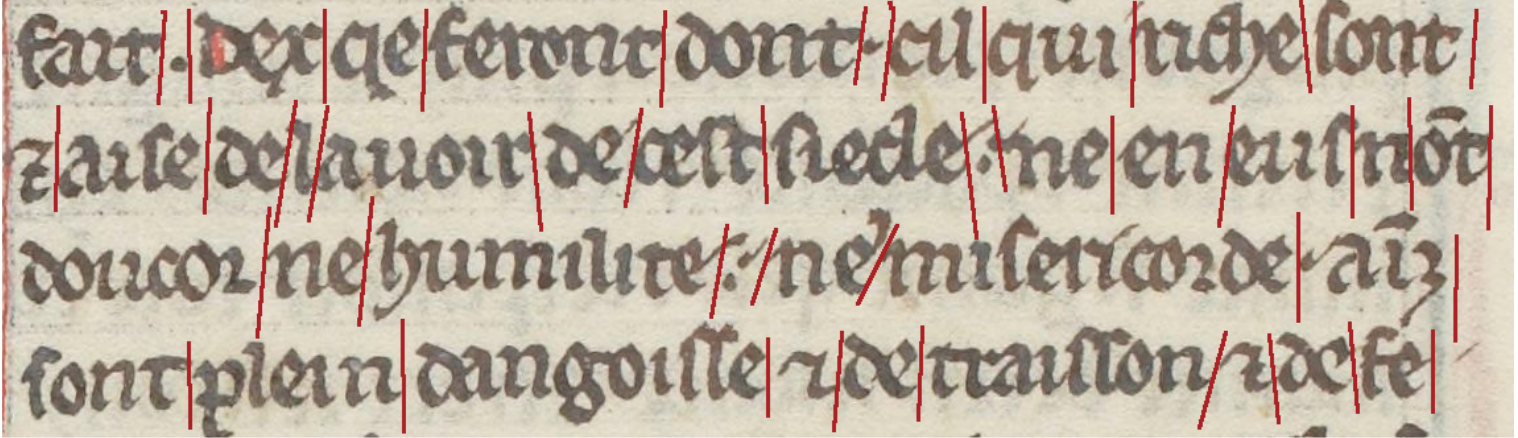 fait . dex qe feront dont · cil qui riche sont
⁊ aise de lauoir de cest siecle · ne en eus nōt
doucor ne humilite · ne misericorde · aīz
sont plein dangoisse ⁊ de traisson ⁊ de fe